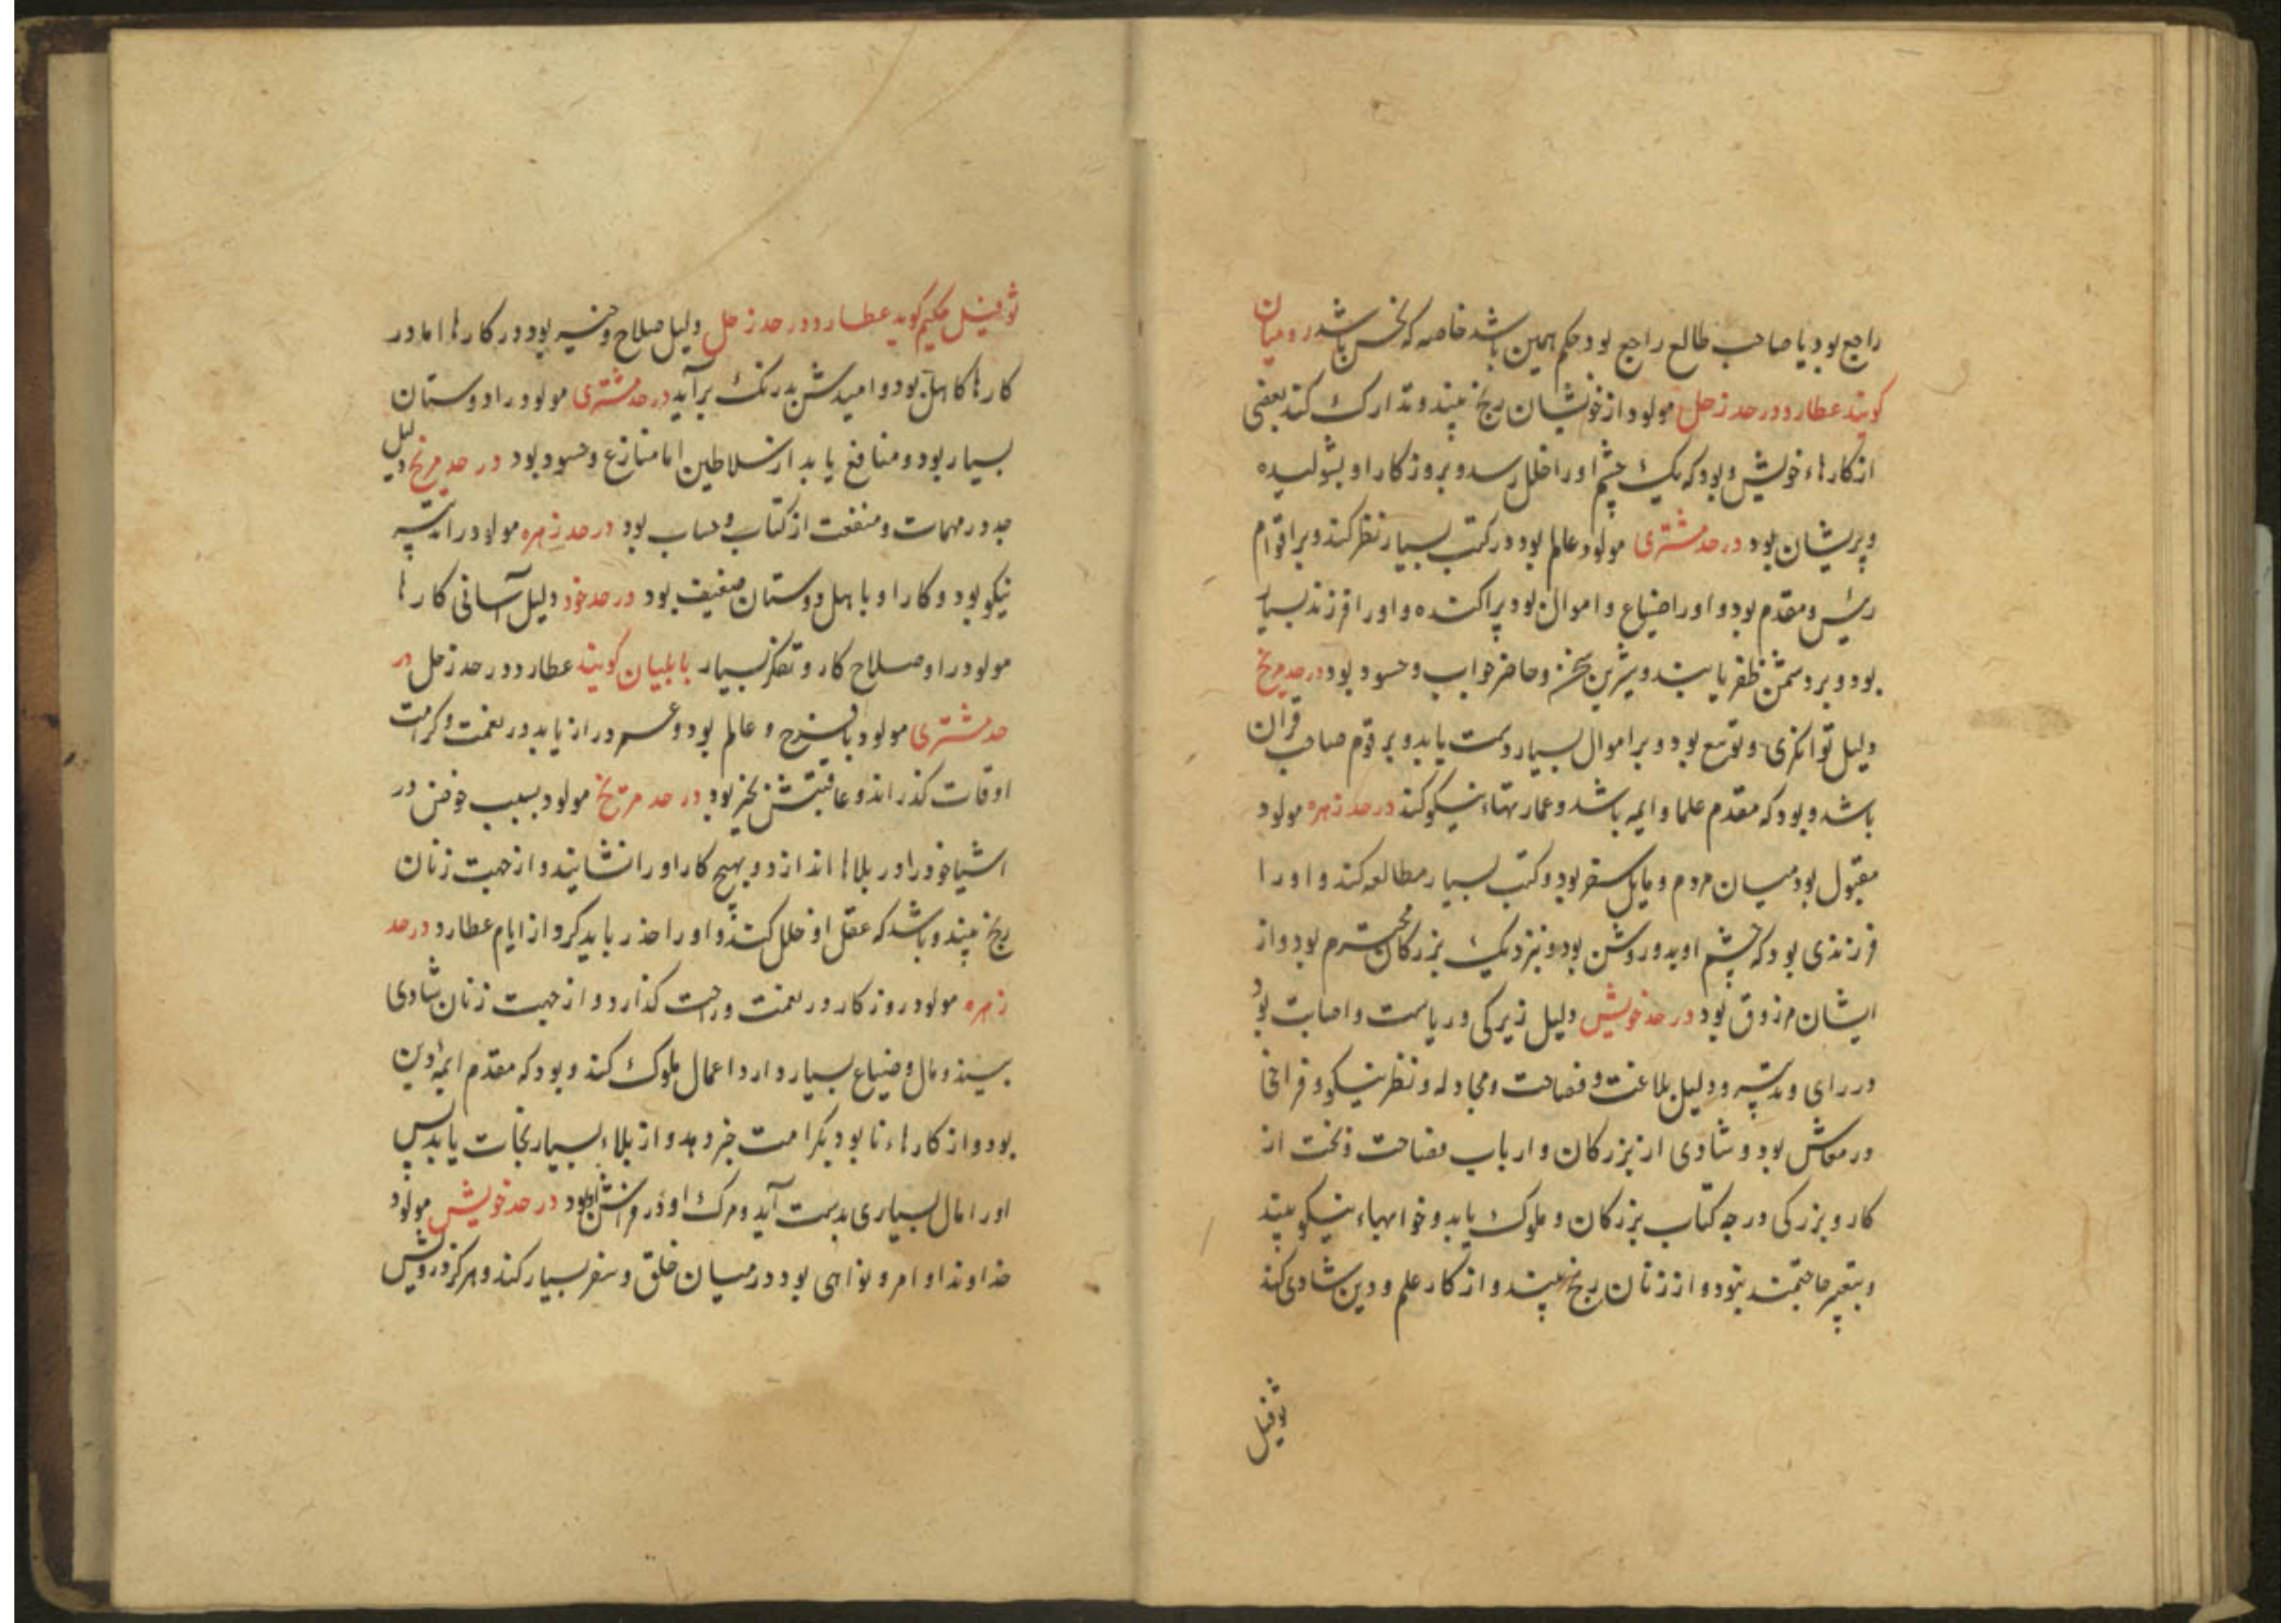 راجع بود یا صاحب طالع راجع بود حکم همین باشد خاصه که نحس باشد رومیان
کویند عطارد در حد زحل مولود از خویشان رنج بیند و تدارک کند بعضی
از کارهاء خویش و بود که یک چشم او را خلل رسد و بروزکار او بشولیده
و پریشان بود در حد مشتری مولود عالم بود در کتب بسیار نظر کند و بر اقوام
رئیس و مقدم بود و او را ضیاع و اموال بود پراکنده و او را فرزند بسیار
بود و بر دشمن ظفر یابند و شیرین سخن و حاضر جواب و حسود بود در حد مریخ
دلیل توانکری و توسع بود و بر اموال بسیار دست یابد و بر قوم صاحب قران
باشد و بود که مقدم علما و ایمه باشد و عمارتهاء نیکو کند در حد زهره مولود
مقبول بود میان مردم و مایل سفر بود و کتب بسیار مطالعه کند و او را
فرزندی بود که چشم او بدو روشن بود و نزدیک بزرکان محترم بود و از
ایشان مرزوق بود در حد خویش دلیل زیرکی و ریاست و اصابت بود
در رای و تدبیر و دلیل بلاغت و فصاحت و مجادله و نظر نیکو و فراخی
در معاش بود و شادی از بزرکان و ارباب فصاحت و بخت از
کار و بزرکی درجه کتاب بزرکان و ملوک یابد و خوابهاء نیکو بیند
و بتعبیر حاجتمند نبود و از زنان رنج بیند و از کار علم و دین شادی کند
ثوفیل
ثوفیل حکیم کوید عطارد در حد زحل دلیل صلاح و خیر بود در کارها اما در
کارها کاهل بود و امیدش بدرنک برآید در حد مشتری مولود را دوستان
بسیار بود و منافع یابد از سلاطین اما منازع و حسود بود در حد مریخ دلیل
جد در مهمات و منفعت از کتاب و حساب بود در حد زهره مولود را اندیشه
نیکو بود و کار او با اهل دوستان ضعیف بود در حد خود دلیل آسانی کارها
مولود را و صلاح کار و تفکر بسیار بابلیان کویند عطارد در حد زحل در
حد مشتری مولود با فرح و عالم بود و عمر دراز یابد در نعمت و کرامت
اوقات کذراند و عاقبتش بخیر بود در حد مریخ مولود بسبب خوض در
اشیا خود را در بلاها اندازد و بهیچ کار او را نشایند و از جهت زنان
رنج بیند و باشد که عقل او خلل کند و او را حذر باید کرد از ایام عطارد در حد
زهره مولود روزکار در نعمت و راحت کذارد و از جهت زنان شادی
بیند و مال و ضیاع بسیار دارد اعمال ملوک کند و بود که مقدم ایمه دین
بود و از کارهاء نابوده بکرامت خبر دهد و از بلاء بسیار نجات یابد پس
او را مال بسیاری بدست آید و مرک او در فراش بود در حد خویش مولود
خداوند اوامر و نواهی بود در میان خلق و سفر بسیار کند و هرکز درویش